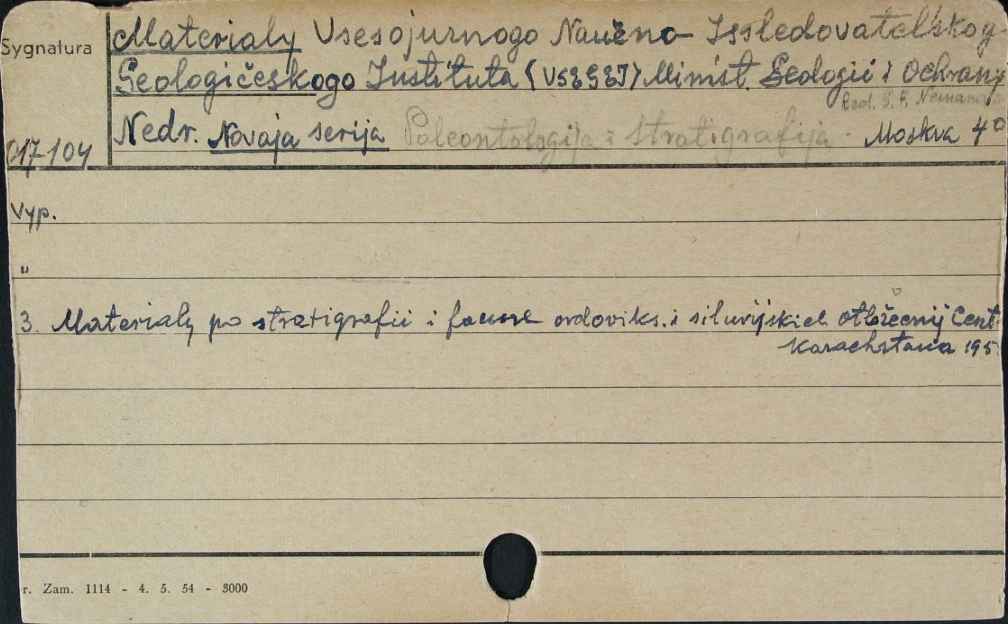 Sygnatura
Materialy Vsesojuznogo Naučno-Issledovatel'skog
Geologičeskogo Instituta (VSEGEI) Minist. Geologii i Ochrany
Red.
Nedr. Novaja serija Paleontologija i stratigrafija. Moskva 4°
017-104
Vyp.
"
3. Materialy po stratigrafii i faune ordoviks. i silurijskich otložecnij Cent.
Kazachstana 195
r. Zam. 1114 - 4. 5. 54 - 3000